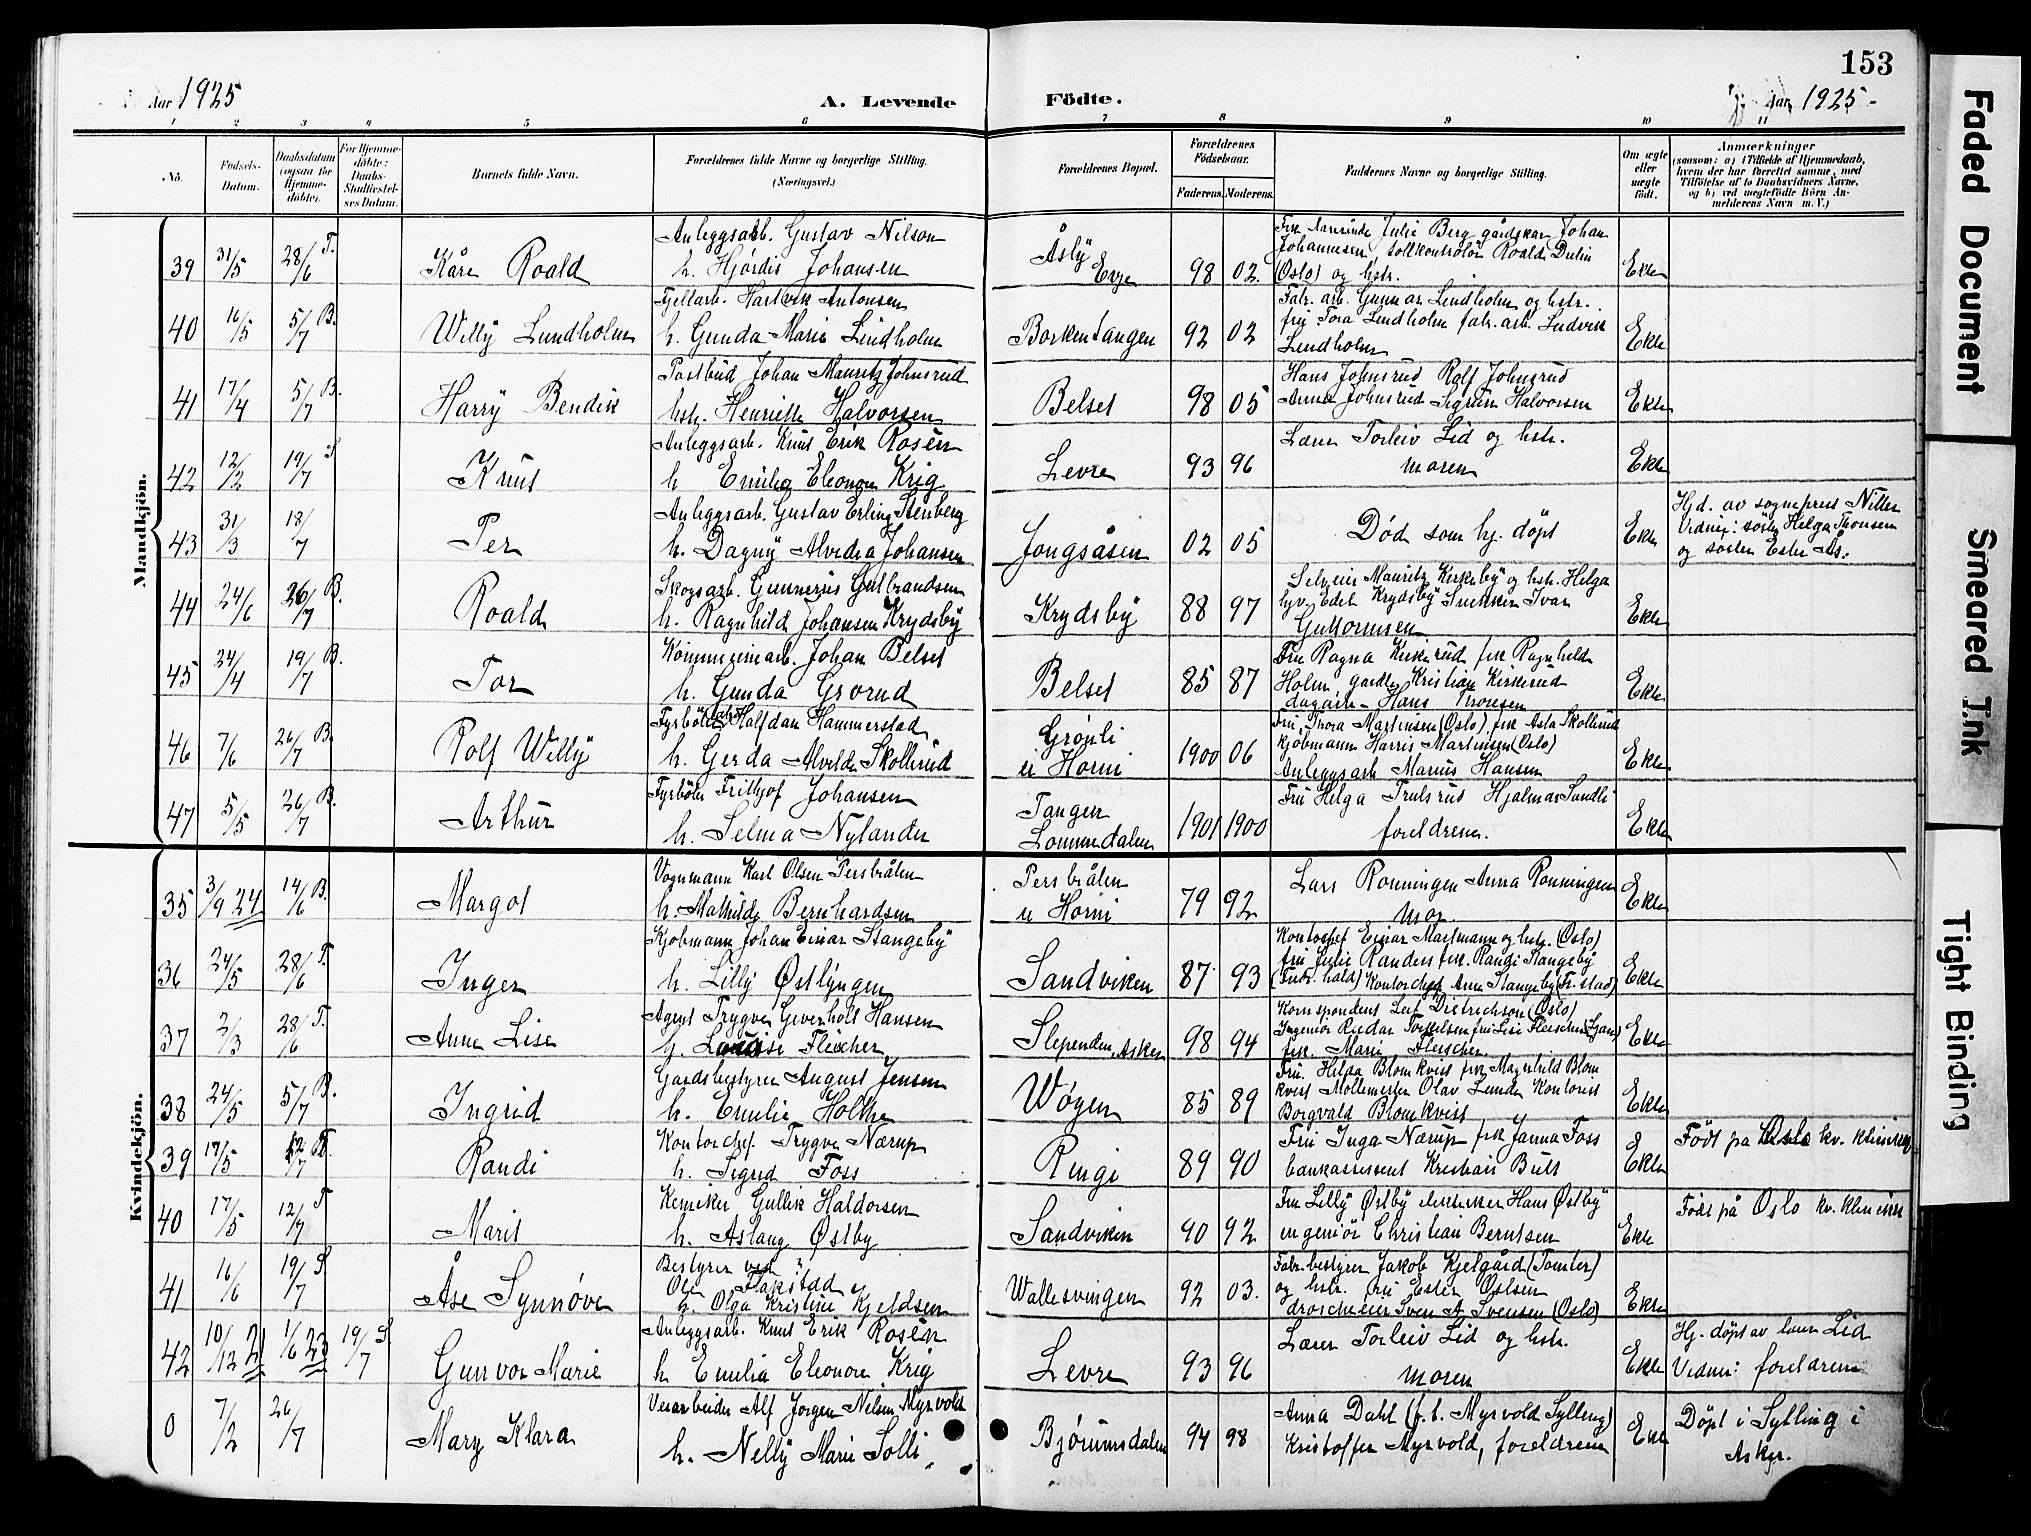 153
Aar 1925
A. Levende
Födte.
Aar 1925-
1 2 3 4 5 6 7 8 9 10 11
No.
Fødsels-Datum.
Daabsdatum (ogsaa for Hjemmedøbte).
For Hjemmedøbte: Daabs-Stadfæstelses Datum.
Barnets fulde Navn.
Forældrenes fulde Navne og borgerlige Stilling. (Næringsvei.)
Forældrenes Bopæl.
Forældrenes Fødselsaar.
Faderens. Moderens.
Faddernes Navne og borgerlige Stilling.
Om ægte eller uægte født.
Anmærkninger
(saasom: a) i Tilfælde af Hjemmedaab, hvem der har forrettet samme, med Tilføielse af to Daabsvidners Navne, og b) ved uægtefødte Børn Anmelderens Navn m. V.)
Mandkjön.
39 31/5 28/6 T. Kåre Roald
Anleggsarb. Gustav Nilson
h. Hjördis Johansen
Åsly Evje 98 02.
Julie Berg gårdskar Johan
Johannesen, tollkontrolör Roald
(Oslo) og hstr.
Ekte
40 16/5 5/7 B. Willy Lundholm
Fjellarb. Hartvik Antonsen
h. Gunda Marie Lindholm
Borkentangen 92 02
Fabr. arb. Gunnar Lindholm og hstr.
fru Tora Lindholm fabr. arb. Ludvik
Lindholm
Ekte
41 17/4 5/7 B. Harry Bendik
Postbud Johan Mauritz Johnsrud
hstr. Henriette Halvorsen
Belset 98 05
Hans Johnsrud Rolf Johnsrud
Anna Johnsrud Sigrun Halvorsen
Ekte
42 12/2 19/7 S Knut
Anleggsarb. Knut Erik Rosén
h Emilia Eleonore Krig
Levre 93 96
Lærer Torleiv Lid og hstr.
moren
Ekte
43 31/3 18/7 Per
Anleggsarb. Gustav Erling Stenberg
h. Dagny Alvida Johansen
Jongsåsen 02 05
Död som hj. döpt
Ekte
Hjd. av sogneprest Nitter
Vidner: söster Helga Thonsen
og söster Ester Ås.
44 24/6 26/7 B. Roald
Skogsarb. Gunnerius Gulbrandsen
h. Ragnhild Johansen Krydsby
Krydsby 88 97
Selveier Mauritz Kirkeby og hstr. Helga
Edel Krydsby Snekker Ivar
Guttormsen
Ekte
45 24/4 19/7 B. Tor
Kommunearb. Johan Belset
h. Gunda Grorud
Belset 85 87
Fru Ragna Kirkerud frk Ragnhild
Holm, Kristian Kirkerud
dagarb. Hans Thoresen
Ekte
46 7/6 26/7 B. Rolf Willy
Fyrböter Halfdan Hammerstad
h. Gerda Alvilde Skollerud
Grönli
u Horni 1900 06
Fru Thora Martinsen (Oslo) frk Asta Skollerud
kjöbmann Harris Martinsen (Oslo)
Anleggsarb Marius Hansen
Ekte
47 5/5 26/7 B. Arthur
Fyrböter Frithjof Johansen
h. Selma Nylander
Tangen
Lommedalen 1901 1900
Fru Helga Trulsrud Hjalmar Sandli
foreldrene.
Ekte
Kvindekjön.
35 3/9 24 14/6 B. Margot
Vognmann Karl Olsen Persbråten
h. Mathilde Bernhardsen
Persbråten
u Horni 79 92
Lars Ronningen Anna Ronningen
mor.
Ekte
36 24/5 28/6 T. Inger
Kjöbmann Johan Einar Stangeby
h. Lilly Østlyngen
Sandviken 87 93
Kontorchef Einar Martmann og hstr. (Oslo)
fru Julie Randers frk. Randi Stangeby
(Fredr. hald) Kontorchef Arne Stangeby (Fr.stad)
Ekte
37 2/3 28/6 T. Anne Lise
Agent Trygve Geverholt Hansen
h. Louise Fleicher
Slependen, Asker 98 94
Korrespondent Leif Dietrichson (Oslo)
Ingeniör Reidar Torkelsen fru Lise Fleischer (Ljan)
frk. Marie Fleischer.
Ekte
38 24/5 5/7 B. Ingrid
Gardsbestyrer August Jensen
h. Emilie Holthe
Wøyen 85 89
Fru. Helga Blomkvist frk Magnhild Blom
kvist Möllemester Olav Lunde Kontorist
Borgvald Blomkvist
Ekte
39 17/5 12/7 T. Randi
Kontorchef. Trygve Nærup
h. Sigrid Foss
Ringi 89 90
Fru Inga Nærup frk Janna Foss
bankassistent Kristian Bull
Ekte
Födt på Oslo kv. kliniken
40 17/5 12/7 T Marit
Kemiker Gullik Haldorsen
h. Aslaug Østby
Sandviken 90 92
Fru Lilly Østby Hans Østby
ingeniör Christian Berntsen
Ekte
Födt på Oslo kv. klinikk
41 16/6 19/7 S Åse Synnöve
Bestyrer ved ?
Ole Flakstad
h. Olga Kristine Kjeldsen
Wallesvingen 92 03.
Fabr. bestyrer Jakob Kjelgård (Tomter)
og hstr. fru Ester Østsen
droscheeier Sven A Svensen (Oslo)
Ekte
42 10/12 21 1/6 23 19/7 S Gunvor Marie
Anleggsarb. Knut Erik Rosén
h Emilia Eleonore Krig
Levre 93 96
Lærer Torleiv Lid og hstr.
moren
Ekte
Hj. döpt av lærer Lid
Vidner: foreldrene
0 7/2 26/7 Mary Klara
Alf Jorgen Nilsen Myrvold
h. Nelly Marie Solli
Bjørumsdalen 94 98
Anna Dahl (f. t. Myrvold Sylling)
Kristoffer Myrvold, foreldrene
Ekte
Döpt i Sylling i
Asker.
Faded Document
Smeared Ink
Tight Binding